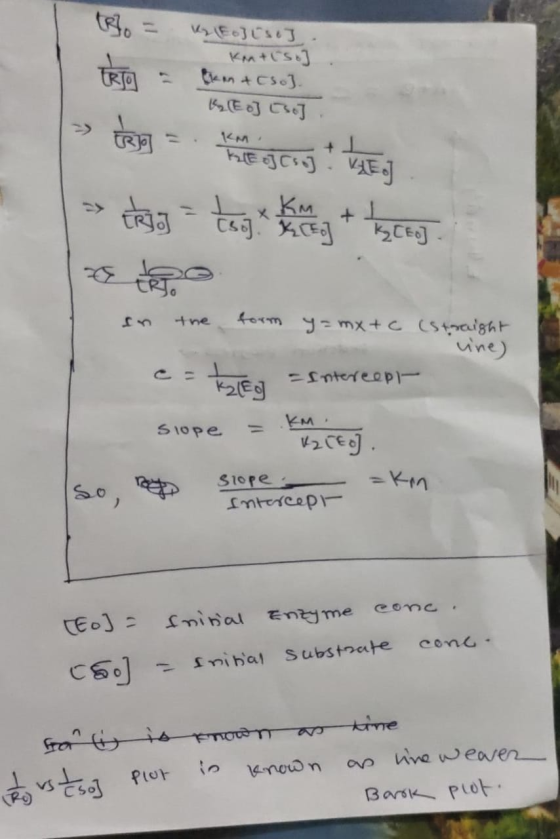 [R]₀ = K₂[E₀][S₀] / KM+[S₀]
1/[R]₀ = KM+[S₀] / K₂[E₀][S₀]
=> 1/[R]₀ = KM / K₂[E₀][S₀] + 1/K₂[E₀]
=> 1/[R]₀ = 1/[S₀] × KM/K₂[E₀] + 1/K₂[E₀]
1/[R]₀
In the form y=mx+c (straight
line)
c = 1/K₂[E₀] = Intercept
Slope = KM / K₂[E₀]
So, Slope / Intercept = KM
[E₀] = Initial Enzyme conc.
[S₀] = Initial Substrate conc.
Eqⁿ (i) is known as Line
1/[R₀] vs 1/[S₀] plot is known as Lineweaver
Bark plot.